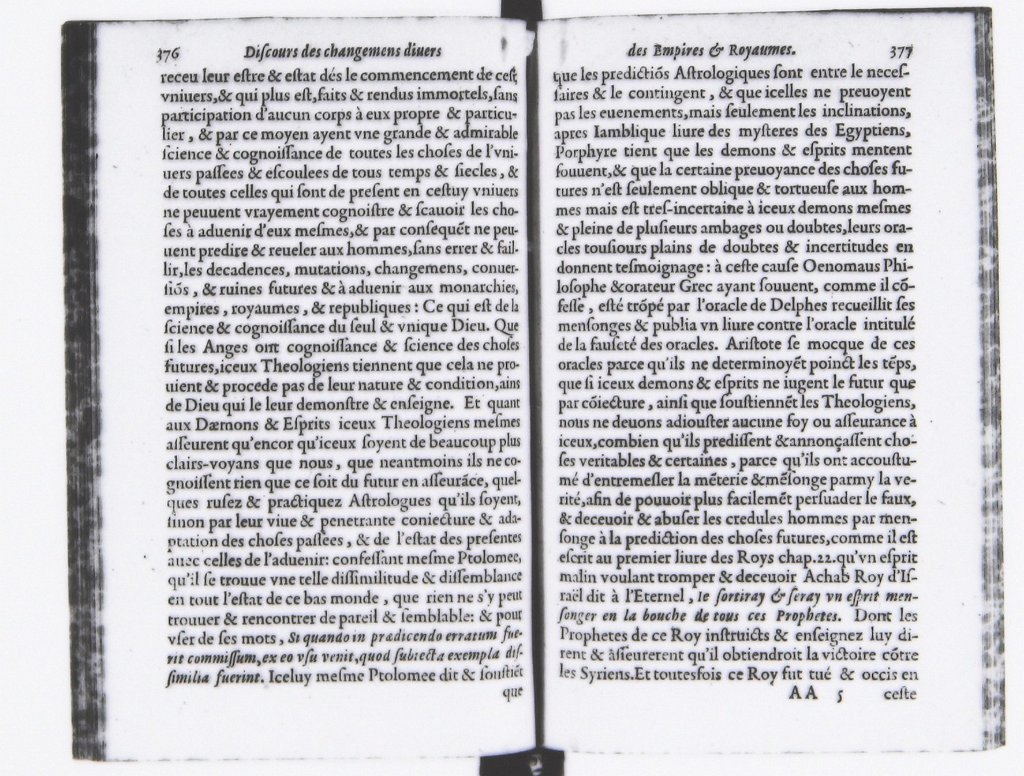 376 Diſcours des changemens diuers
receu leur eſtre & eſtat dés le commencement de ceſt
vniuers,& qui plus eſt,faits & rendus immortels,ſans
participation d'aucun corps à eux propre & particu-
lier, & par ce moyen ayent vne grande & admirable
ſcience & cognoiſſance de toutes les choſes de l'vni-
uers paſſees & eſcoulees de tous temps & ſiecles, &
de toutes celles qui ſont de preſent en ceſtuy vniuers
ne peuuent vrayement cognoiſtre & ſcauoir les cho-
ſes à aduenir d'eux meſmes,& par conſequẽt ne peu-
uent predire & reueler aux hommes,ſans errer & fail-
lir,les decadences, mutations, changemens, conuer-
ſiõs, & ruines futures & à aduenir aux monarchies,
empires, royaumes, & republiques : Ce qui eſt de la
ſcience & cognoiſſance du ſeul & vnique Dieu. Que
ſi les Anges ont cognoiſſance & ſcience des choſes
futures,iceux Theologiens tiennent que cela ne pro-
uient & procede pas de leur nature & condition,ains
de Dieu qui le leur demonſtre & enſeigne. Et quant
aux Dæmons & Eſprits iceux Theologiens meſmes
aſſeurent qu'encor qu'iceux ſoyent de beaucoup plus
clairs-voyans que nous, que neantmoins ils ne co-
gnoiſſent rien que ce ſoit du futur en aſſeurãce, quel-
ques ruſez & practiquez Aſtrologues qu'ils ſoyent,
ſinon par leur viue & penetrante coniecture & ada-
ptation des choſes paſſees, & de l'eſtat des preſentes
auec celles de l'aduenir: confeſſant meſme Ptolomee,
qu'il ſe trouue vne telle diſſimilitude & diſſemblance
en tout l'eſtat de ce bas monde, que rien ne s'y peut
trouuer & rencontrer de pareil & ſemblable: & pour
vſer de ſes mots, Si quando in prædicendo erratum fue-
rit commiſſum,ex eo vſu venit,quod ſubiecta exempla diſ-
ſimilia fuerint. Iceluy meſme Ptolomee dit & ſouſtiẽt
que
des Empires & Royaumes. 377
que les predictiõs Aſtrologiques ſont entre le neceſ-
ſaires & le contingent, & que icelles ne preuoyent
pas les euenements,mais ſeulement les inclinations,
apres Iamblique liure des myſteres des Egyptiens,
Porphyre tient que les demons & eſprits mentent
ſouuent,& que la certaine preuoyance des choſes fu-
tures n'eſt ſeulement oblique & tortueuſe aux hom-
mes mais eſt treſ-incertaine à iceux demons meſmes
& pleine de pluſieurs ambages ou doubtes,leurs ora-
cles touſiours plains de doubtes & incertitudes en
donnent teſmoignage : à ceſte cauſe Oenomaus Phi-
loſophe & orateur Grec ayant ſouuent, comme il cõ-
feſſe, eſté trõpé par l'oracle de Delphes recueillit ſes
menſonges & publia vn liure contre l'oracle intitulé
de la fauſeté des oracles. Ariſtote ſe mocque de ces
oracles parce qu'ils ne determinoyẽt poinct les tẽps,
que ſi iceux demons & eſprits ne iugent le futur que
par cõiecture, ainſi que ſouſtiennẽt les Theologiens,
nous ne deuons adiouſter aucune foy ou aſſeurance à
iceux,combien qu'ils prediſſent & annonçaſſent cho-
ſes veritables & certaines, parce qu'ils ont accouſtu-
mé d'entremeſler la mẽterie & mẽſonge parmy la ve-
rité,afin de pouuoir plus facilemẽt perſuader le faux,
& deceuoir & abuſer les credules hommes par men-
ſonge à la prediction des choſes futures,comme il eſt
eſcrit au premier liure des Roys chap.22.qu'vn eſprit
malin voulant tromper & deceuoir Achab Roy d'Iſ-
raël dit à l'Eternel, Ie ſortiray & ſeray vn eſprit men-
ſonger en la bouche de tous ces Prophetes. Dont les
Prophetes de ce Roy inſtruicts & enſeignez luy di-
rent & aſſeurerent qu'il obtiendroit la victoire cõtre
les Syriens.Et toutesfois ce Roy fut tué & occis en
AA 5 ceſte